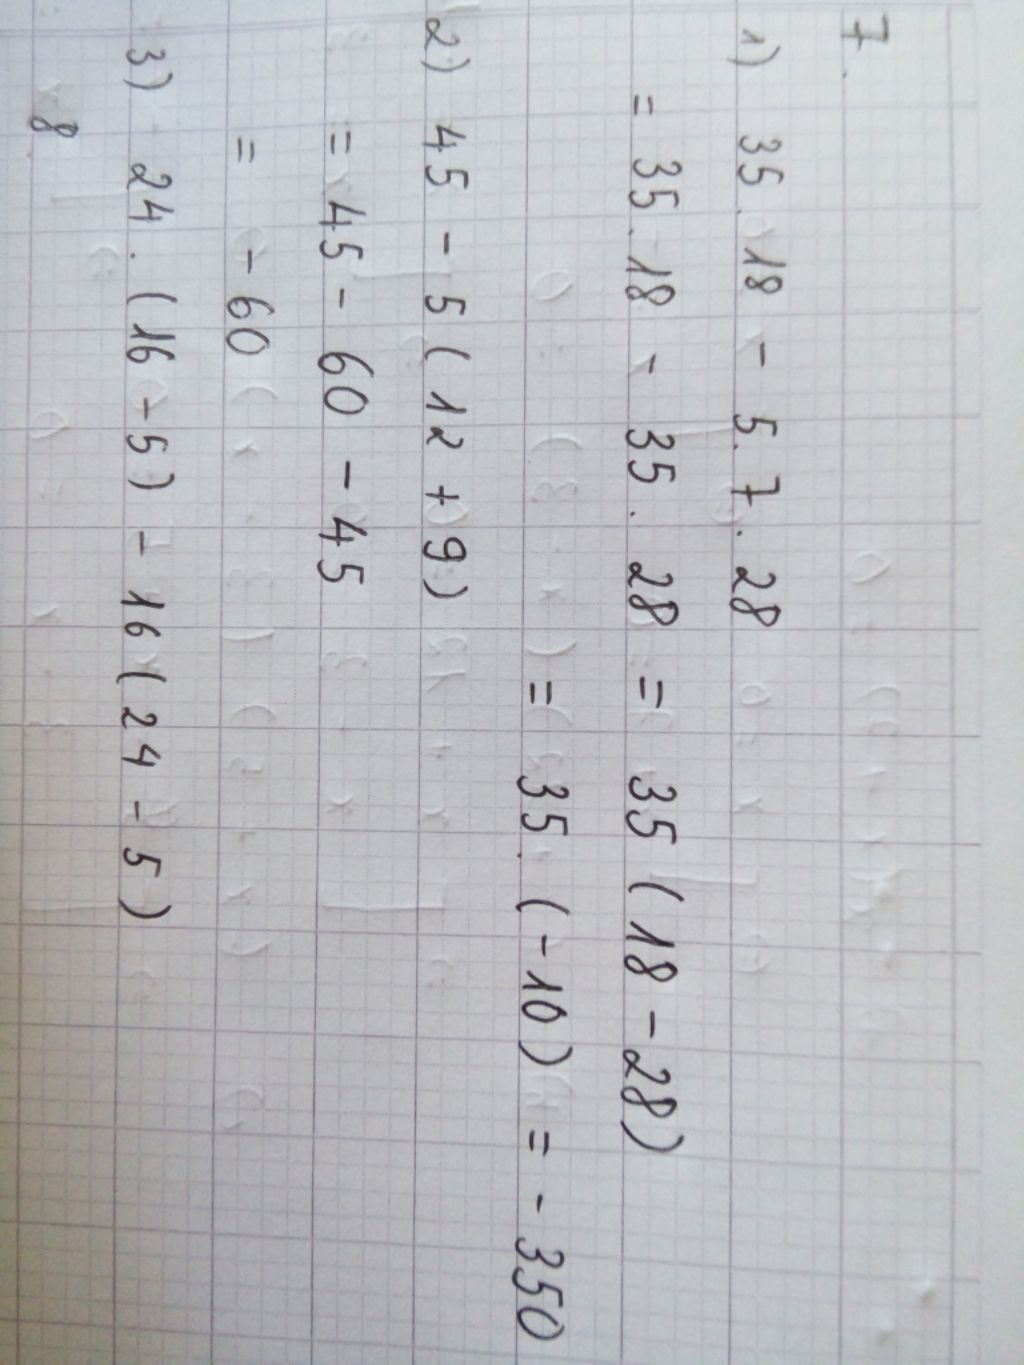 7.
1) 35.18 - 5.7.28
= 35.18 - 35.28 = 35 (18 - 28)
= 35.(-10) = - 350
2) 45 - 5 (12 + 9)
= 45 - 60 - 45
= - 60
3) 24.(16 - 5) - 16 (24 - 5)
8